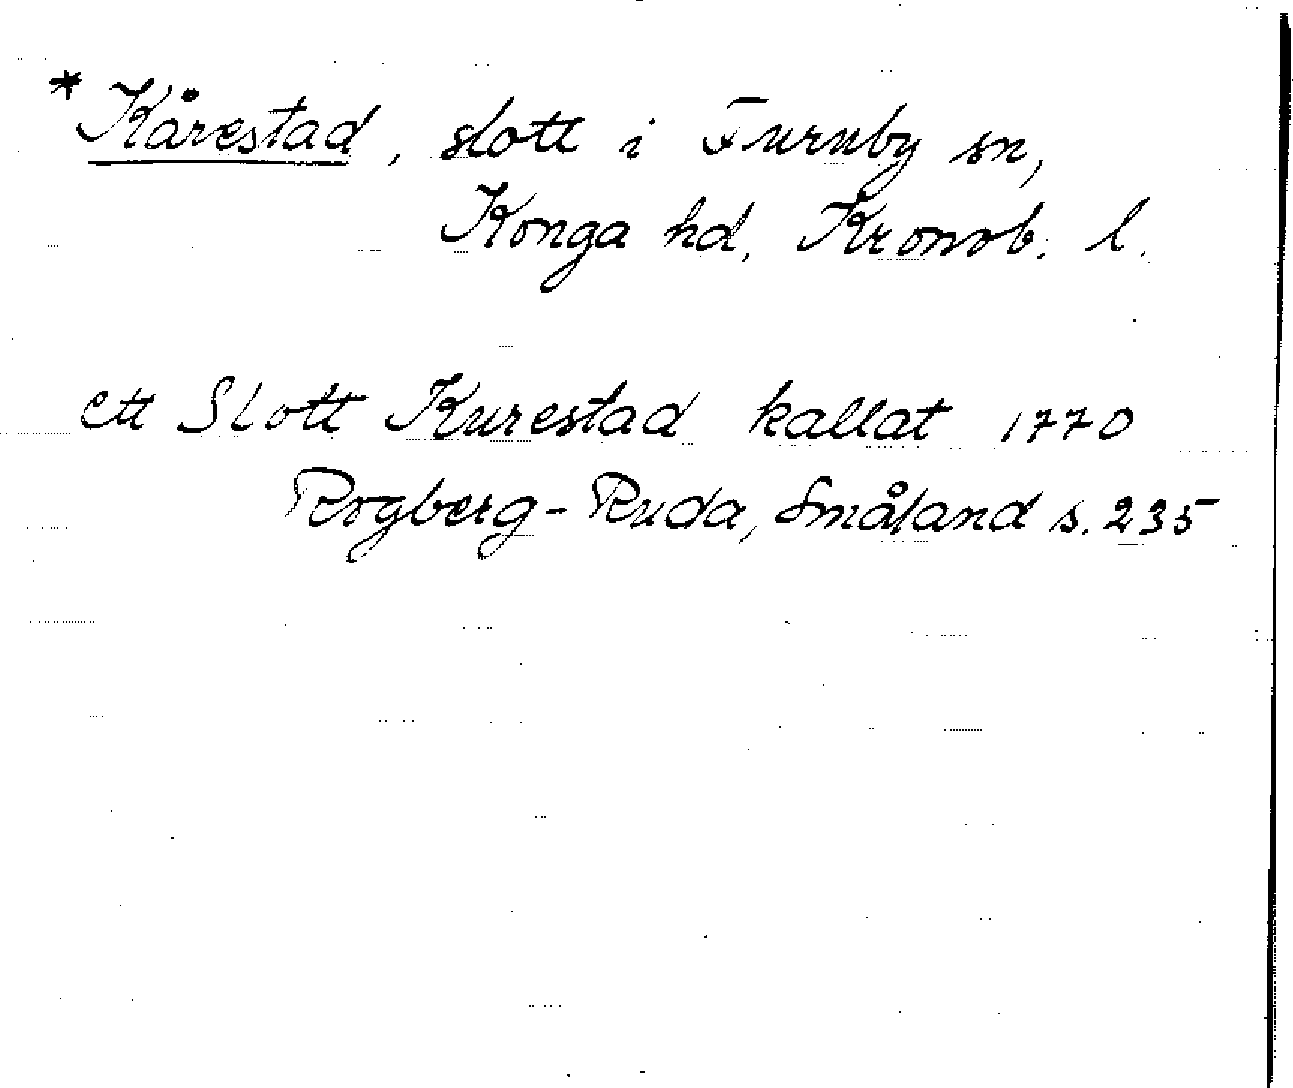 * Kårestad, slott i Furuby sn,
Konga hd, Kronob. l.
ett Slott Kurestad kallat 1770
Rogberg-Ruda, Småland s. 235